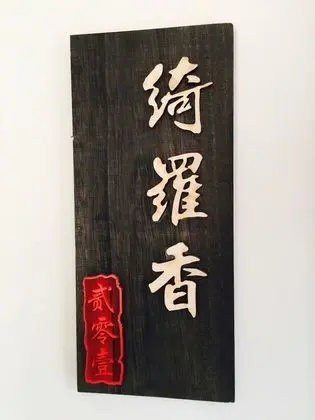 綺羅香
貳零壹